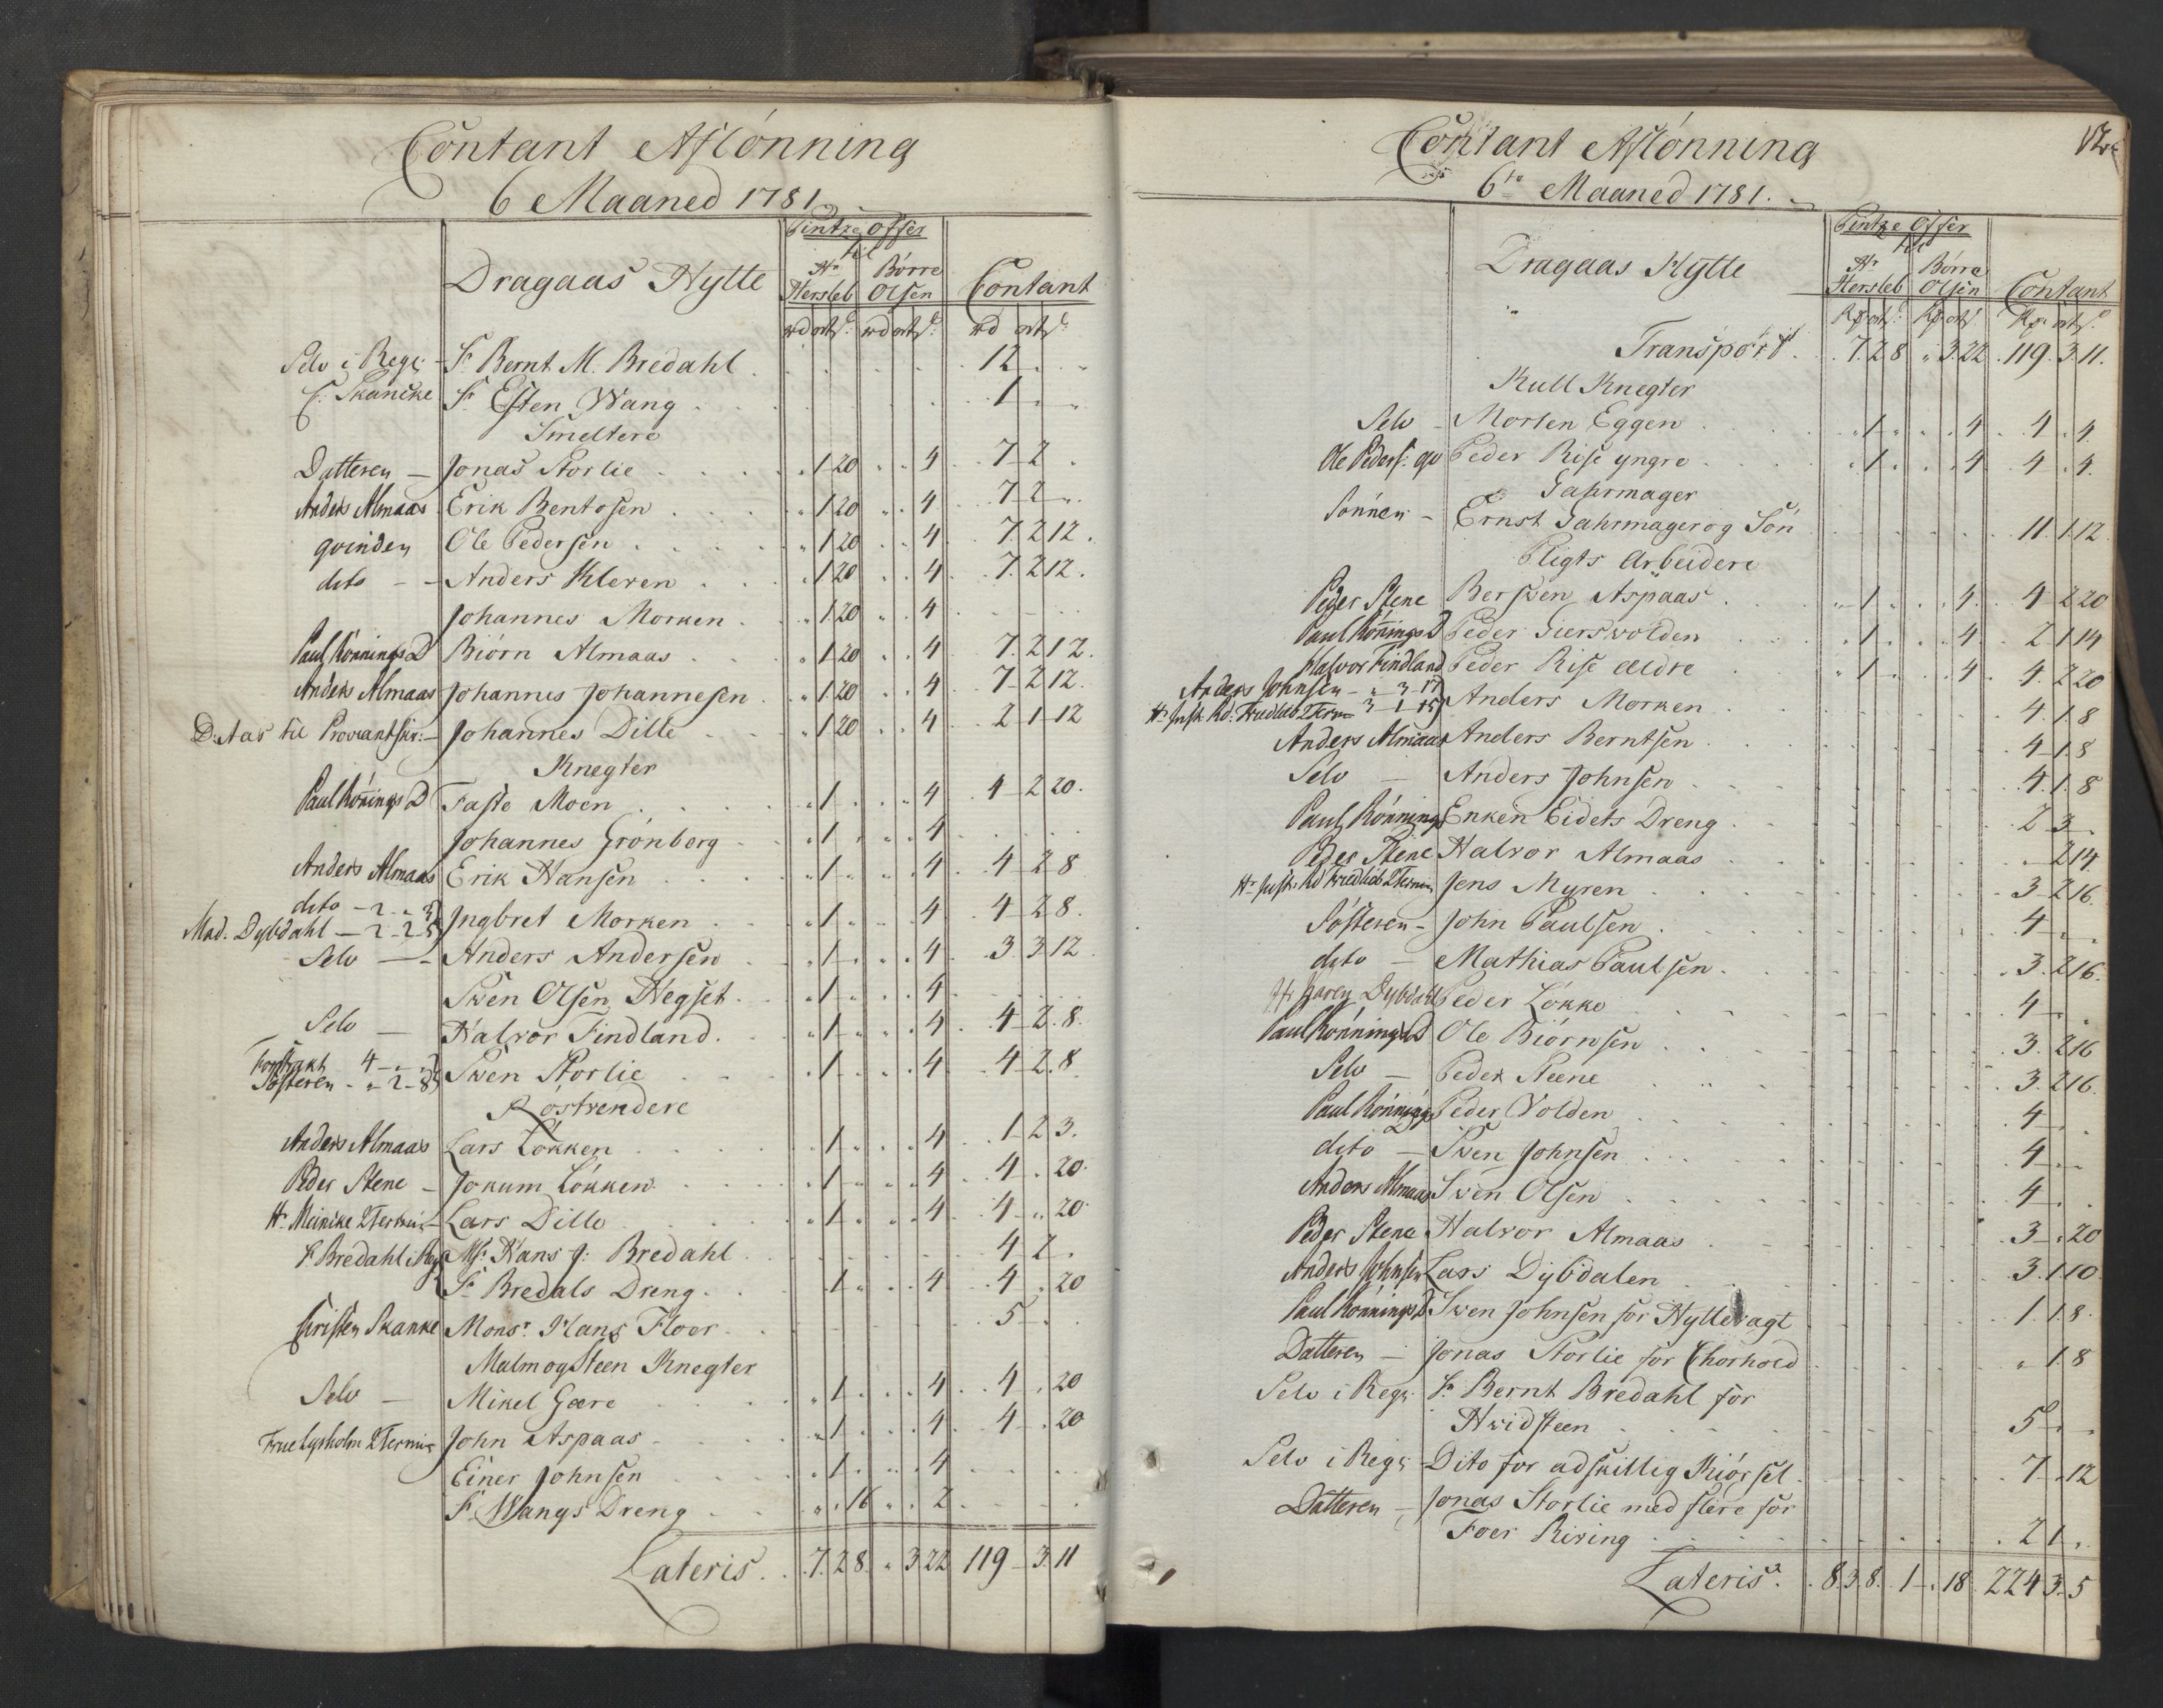 Contant Aflónning
6 Maaned 1781
Pintze Offer
til
Dragaas Hytte Hr Hersleb Börre Olsen Contant
rd ort s: rd ort s: rd ort s:
Selv i Regn: Sr Bernt M. Bredahl 12
C. Skancke Sr Esten Wang 1
Smeltere
Datteren Jonas Storlie 1 20 4 7 2
Anders Almaas Erik Bentosen 1 20 4 7 2
qvinden Ole Pedersen 1 20 4 7 2 12
dito Anders Kleven 1 20 4 7 2 12
Johannes Morken 1 20 4
Paul Rönnings D Biörn Almaas 1 20 4 7 2 12
Anders Almaas Johannes Johannesen 1 20 4 7 2 12
til Proviantskr: Johannes Dille 1 20 4 2 1 12
Knegter
Paul Rönnings D Faste Moen 1 4 4 2 20
Johannes Grönborg 1 4
Anders Almaas Erik Hansen 1 4 4 2 8
dito - 2 - " 3
Mad. Dybdahl - 2 - 2 - 5 Ingbret Morken 1 4 4 2 8
Selv Anders Andersen 1 4 3 3 12
Swen Olsen Hegset 1 4
Selv Halvor Findland 1 4 4 2 8
Forstrakt 4
Sösteren - " 2 - 8 Swen Storlie 1 4 4 2 8
Röstvendere
Anders Almaas Lars Lökken 1 4 1 2 3
Peder Stene Jokum Lökken 1 4 4 20
Hr Meincke 2 Termin Lars Dille 1 4 4 20
Sr Bredahl i Regn Msr Hans J: Bredahl 4 2
Sr Bredals Dreng 1 4 4 20
Christen Skanke Monsr Hans Floer 5
Malm og Steen Knegter
Selv Mikel Gare 1 4 4 20
Frue Lysholm 2 Termin John Aspaas 1 4 4 20
Einer Johnsen 1 4
Sr Wangs Dreng 16 2
Lateris 7 2 8 " 3 22 119 3 11
Contant Aflónning
6te Maaned 1781.
Pintze Offer
til
Dragaas Hytte Hr Hersleb Börre Olsen Contant
Transport 7 2 8 " 3 22 119 3 11
Kull Knegter
Selv Morten Eggen 1 4 4 4
Ole Peders: qv Peder Rise yngre 1 4 4 4
Gahrmager
Sönnen Ernst Gahrmager og Sön 11 1 12
Pligts Arbeidere
Peder Stene Berswen Aspaas 1 4 4 2 20
Paul Rönnings D Peder Gierswolden 1 4 2 1 14
Halvor Findland Peder Rise ældre 1 4 4 2 20
Anders Johnsen - " 3 - 17
Hr Just: Rd: Friedlieb 2 Term 3 - 1 - 15 Anders Morken 4 1 8
Anders Almaas Anders Berntsen 4 1 8
Selv Anders Johnsen 4 1 8
Paul Rönnings Enken Eidets Dreng 2 3
Peder Stene Halvor Almaas 2 14
Hr Just: Rd Friedlieb 2 Termin Jens Myren 3 2 16
Sösteren John Paulsen 4
dito Mathias Paulsen 3 2 16
Dybdahl Peder Lökke 4
Paul Rönnings D Ole Biörnsen 3 2 16
Selv Peder Steene 3 2 16
Paul Rönnings D Peder Volden 4
dito Swen Johnsen 4
Anders Almaas Swen Olsen 4
Peder Stene Halvor Almaas 3 " 20
Anders Johnsen Lars Dybdalen 3 1 10
Paul Rönnings D Swen Johnsen for Hyttevagt 1 1 8
Datteren Jonas Storlie for Chorhold " 1 8
Selv i Regn: Sr Bernt Bredahl for
Hwidsteen 5
Selv i Regn Dito for adskillig Kiörsel 7 12
Datteren Jonas Storlie med flere for
Foer Kiöring 2 1
Lateris 8 3 8 1 " 18 224 3 5